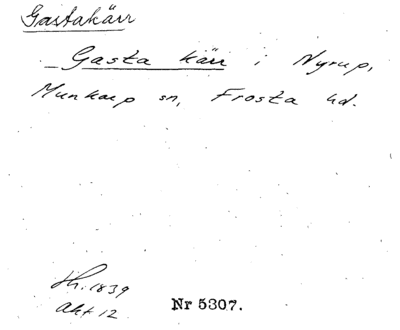 Gastakärr
Gasta kärr i Nyrup,
Munkarp sn, Frosta hd.
Lh. 1839
Akt 12
Nr 5307.